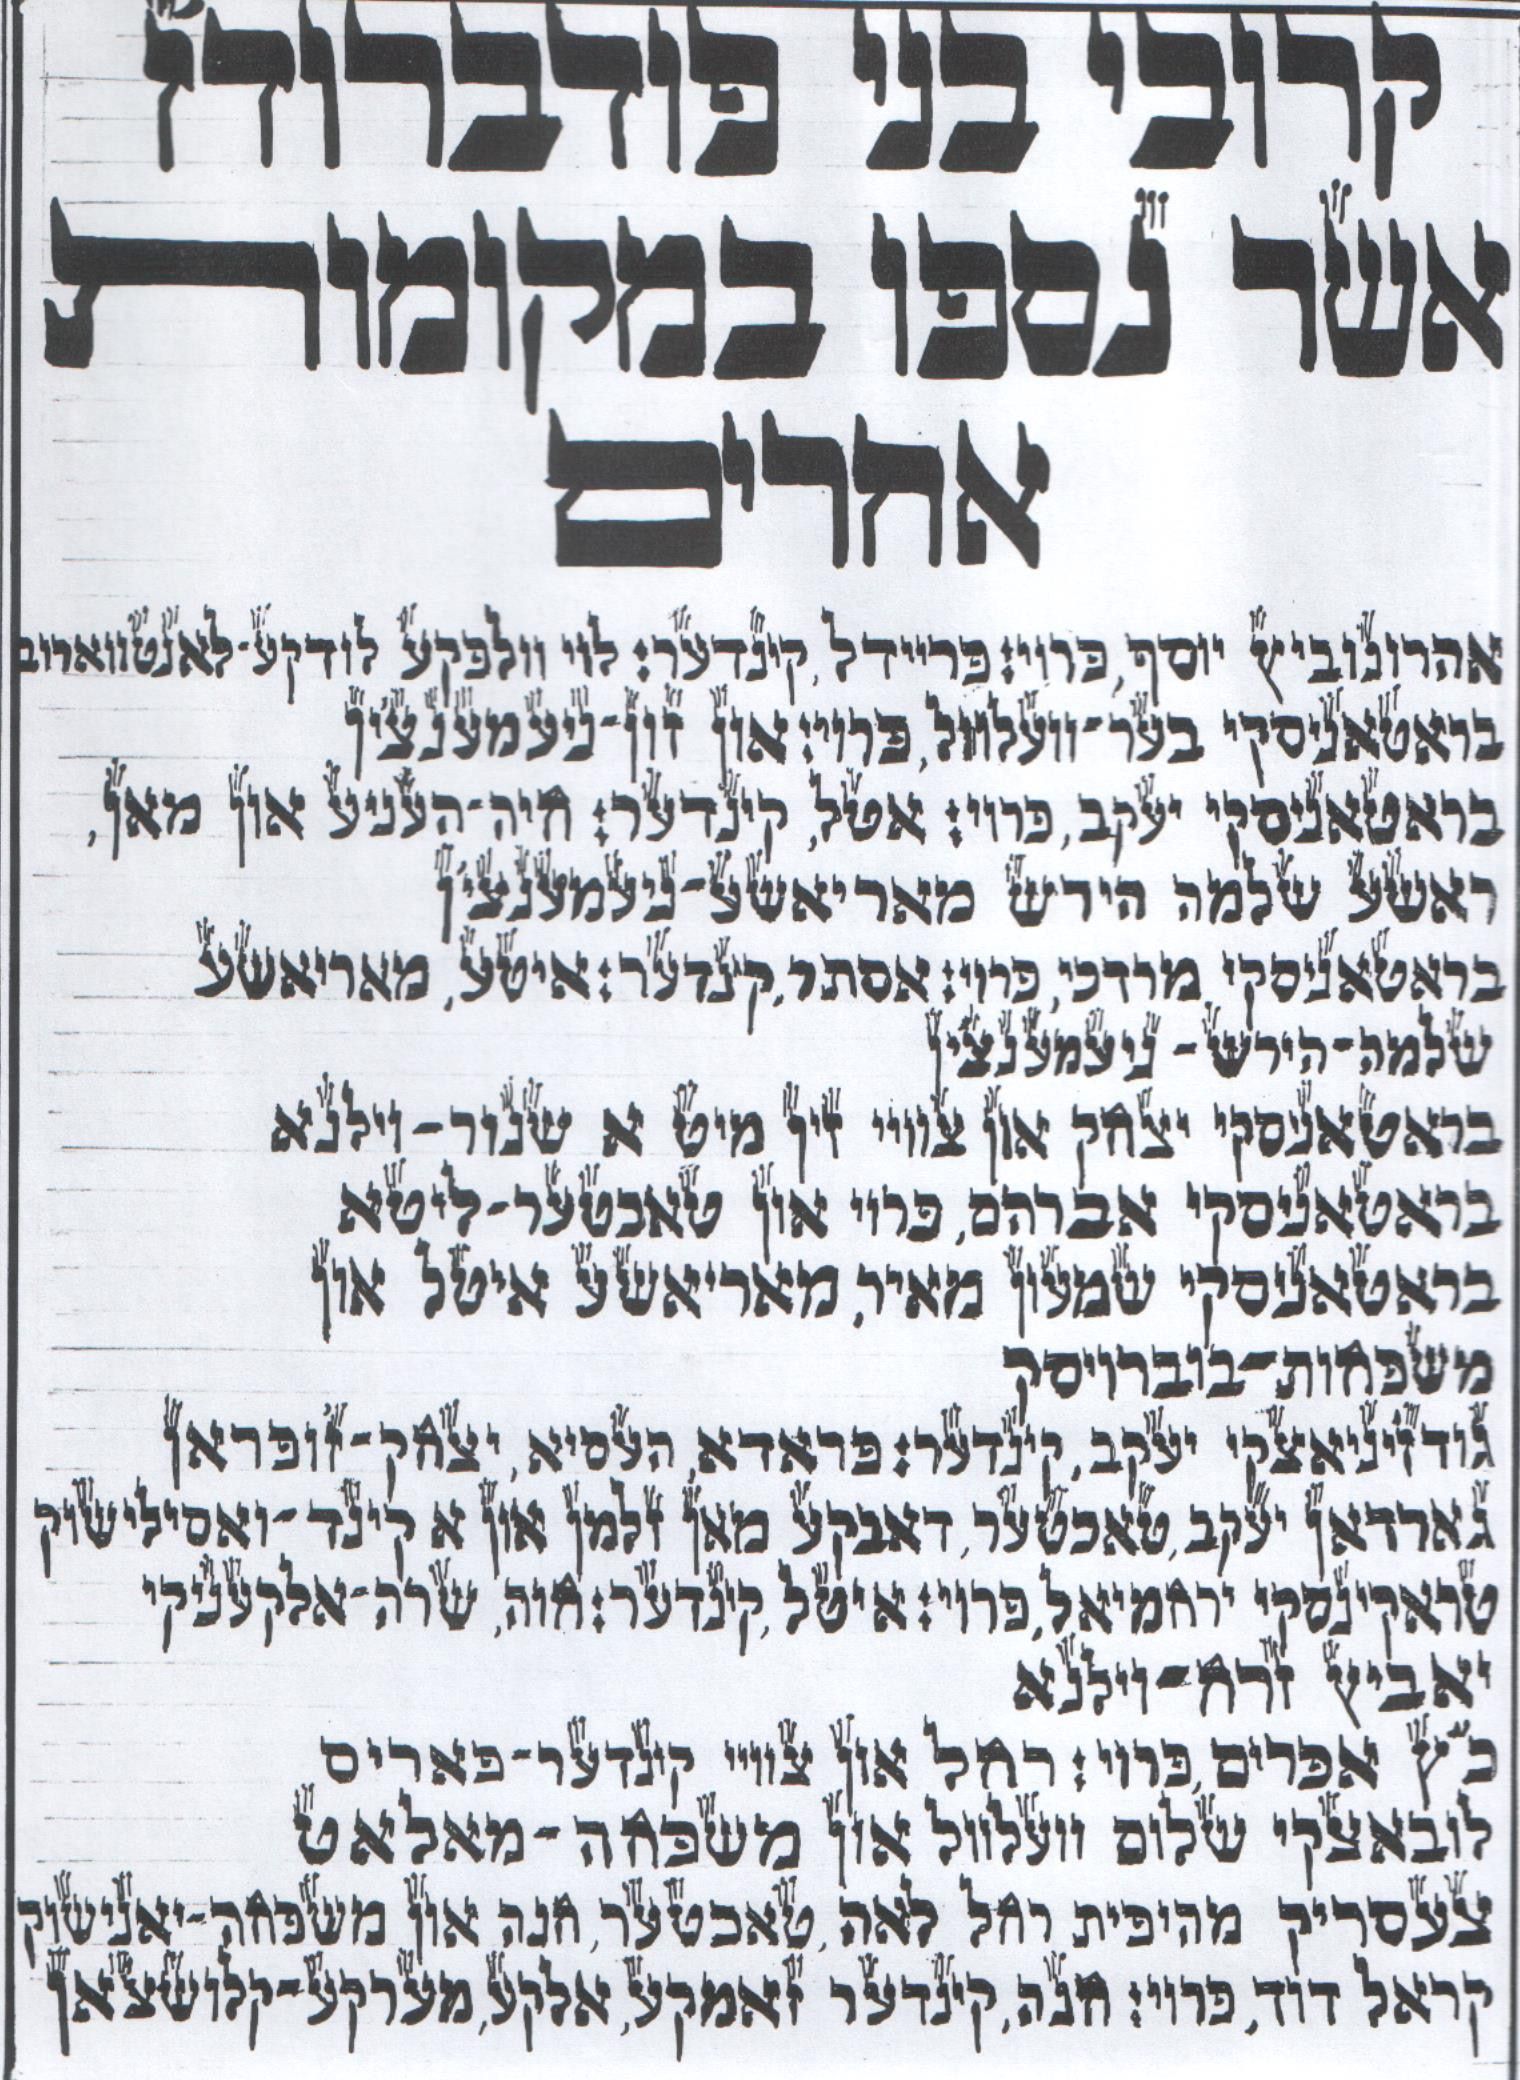 קרובי בני פודברודז
אשר נספו במקומות
אחרים
אהרונוביץ יוסף, פרוי: פריידל, קינדער: לוי וולפקע לודקע-לאנטווארוב
בראטאניסקי בער-וועלוול, פרוי: און זון-ניעמענצין
בראטאניסקי יעקב, פרוי: אטל, קינדער: חיה-העניע און מאן,
ראשע שלמה הירש מאריאשע-ניעמענצין
בראטאניסקי מרדכי, פרוי: אסתר, קינדער: איטע, מאריאשע
שלמה-הירש-ניעמענצין
בראטאניסקי יצחק און צוויי זין מיט א שנור-וילנא
בראטאניסקי אברהם, פרוי און טאכטער-ליטא
בראטאניסקי שמעון מאיר, מאריאשע איטל און
משפחות-בוברויסק
גודזיניאצקי יעקב, קינדער: פראדא, העסיא, יצחק-זופראן
גארדאן יעקב, טאכטער, דאבקע מאן זלמן און א קינד-ואסילישוק
טראקינסקי ירחמיאל, פרוי: איטל, קינדער: חוה, שרה-אלקעניקי
יאביץ זרח-וילנא
כ"ץ אפרים, פרוי: רחל און צוויי קינדער-פאריס
לובאצקי שלום וועלוול און משפחה-מאלאט
צעסריק מהיפית רחל לאה, טאכטער, חנה און משפחה-יאנישוק
קראל דוד, פרוי: חנה, קינדער זאמקע, אלקע, מערקע-קלושצאן